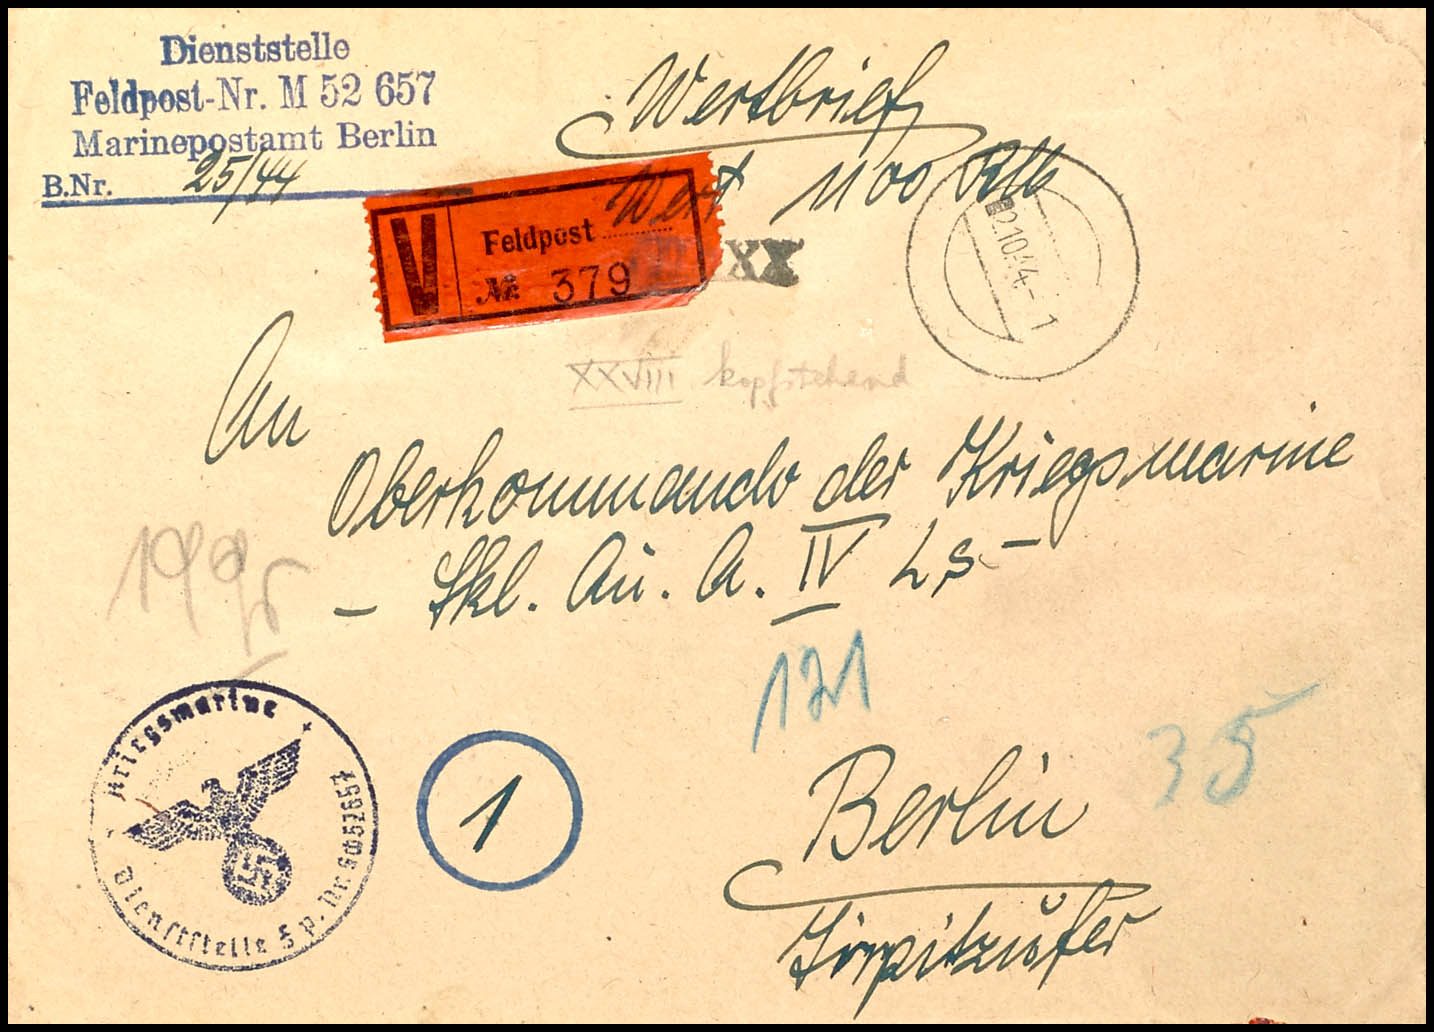 Dienststelle
Feldpost-Nr. M 52 657
Marinepostamt Berlin
B.Nr. 25/44
Wertbrief
Wert 1100 RM
V
Feldpost
№ 379
XX
2.10.44-1
XXVIII kopfstehend
An
Oberkommando der Kriegsmarine
- Skl. Qu. A. IV Ls -
121
35
Berlin
Tirpitzufer
1
Kriegsmarine
Dienststelle F.p. Nr.